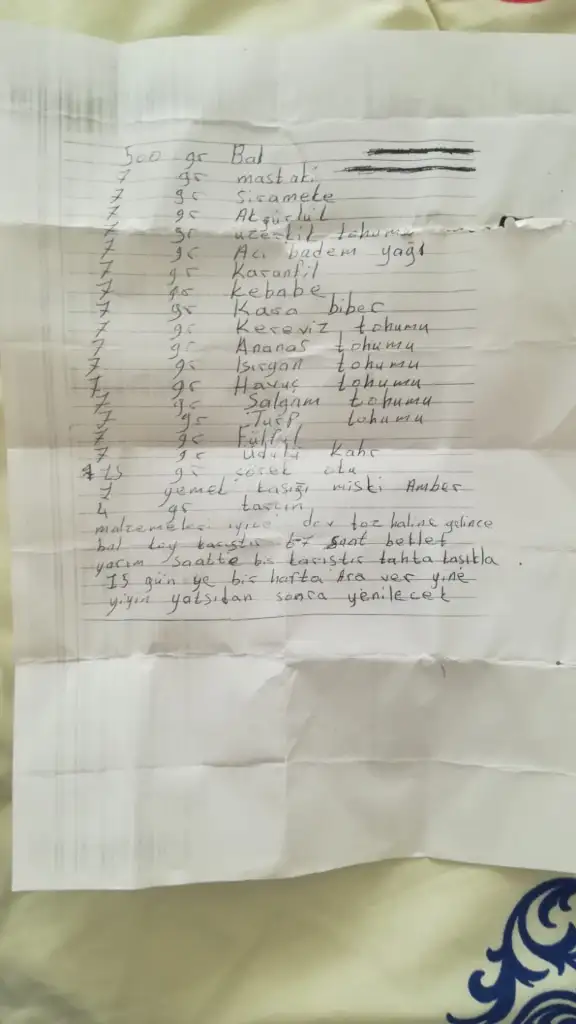 500 gr Bal
7 gr mastaki
7 gr Sinameke
7 gr At
7 gr üzerlik tohumu
7 gr Acı badem yağı
7 gr Karanfil
7 gr kebabe
7 gr Kara biber
7 gr Kereviz tohumu
7 gr Ananas tohumu
7 gr Isırgan tohumu
7 gr Havuç tohumu
7 gr Şalgam tohumu
7 gr Turp tohumu
7 gr Fülfül
7 gr Üdülü Kahr
15 gr çörek otu
1 yemek kaşığı miski Amber
4 gr tarçın
malzemeler iyice döv toz haline gelince
bal koy karıştır saat beklet
yarım saatte bir karıştır tahta kaşıkla.
15 gün ye bir hafta Ara ver yine
yiyin yatsıdan sonra yenilecek